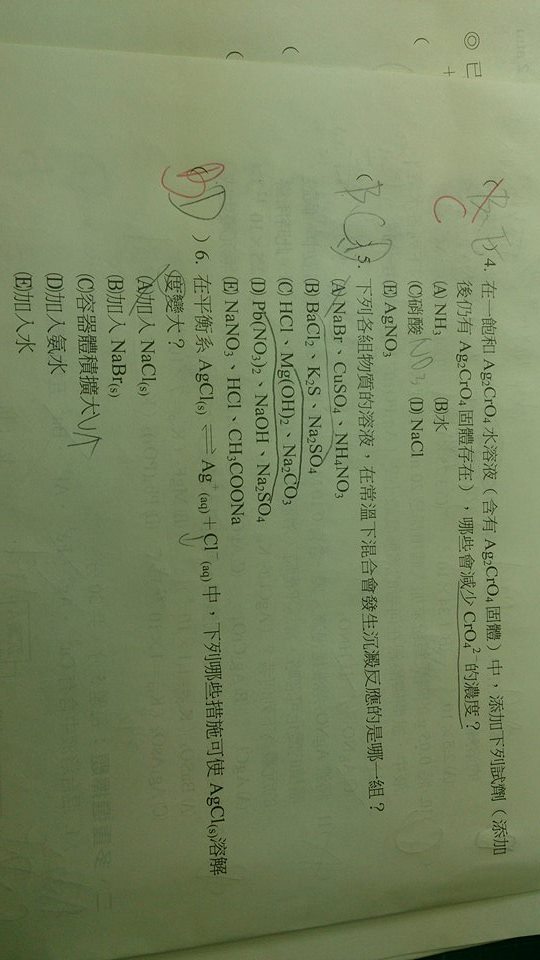 ◎ 已
(
+
(
(
(BD) 4. 在一飽和 Ag₂CrO₄ 水溶液（含有 Ag₂CrO₄ 固體）中，添加下列試劑（添加
C 後仍有 Ag₂CrO₄ 固體存在），哪些會減少 CrO₄² 的濃度？
(A) NH₃ (B)水
(C)硝酸 (D) NaCl
(E) AgNO₃
(BCD) 5. 下列各組物質的溶液，在常溫下混合會發生沉澱反應的是哪一組？
(A) NaBr、CuSO₄、NH₄NO₃
(B) BaCl₂、K₂S、Na₂SO₄
(C) HCl、Mg(OH)₂、Na₂CO₃
(D) Pb(NO₃)₂、NaOH、Na₂SO₄
(E) NaNO₃、HCl、CH₃COONa
(BD) 6. 在平衡系 AgCl(s) ⇌ Ag⁺(aq)＋Cl⁻(aq) 中，下列哪些措施可使 AgCl(s)溶解
度變大？
(A)加入 NaCl(s)
(B)加入 NaBr(s)
(C)容器體積擴大
(D)加入氨水
(E)加入水